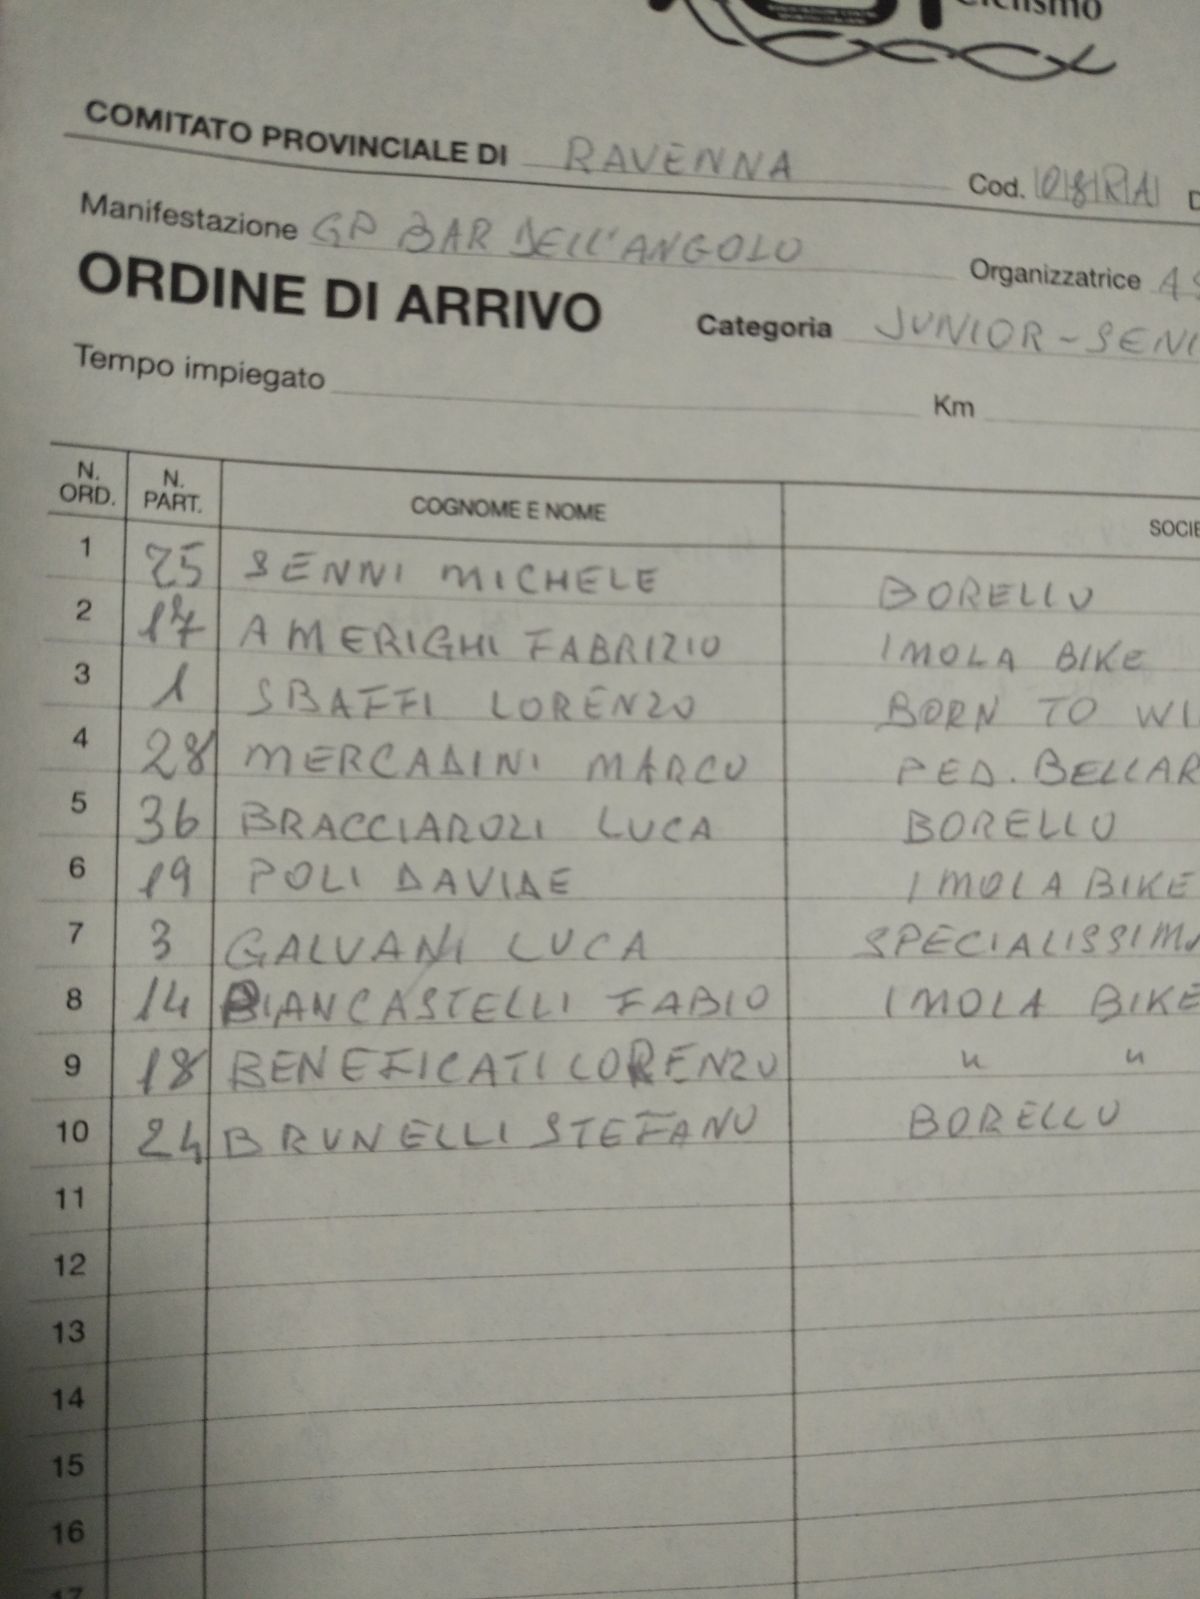 COMITATO PROVINCIALE DI RAVENNA Cod. 08RA D
Manifestazione GP BAR DELL'ANGOLO Organizzatrice AS
ORDINE DI ARRIVO Categoria JUNIOR-SENI
Tempo impiegato Km
N. ORD. N. PART. COGNOME E NOME SOCIE
1 25 SENNI MICHELE BORELLO
2 17 AMERIGHI FABRIZIO IMOLA BIKE
3 1 SBAFFI LORENZO BORN TO WI
4 28 MERCADINI MARCO PED. BELLAR
5 36 BRACCIAROLI LUCA BORELLO
6 19 POLI DAVIDE IMOLA BIKE
7 3 GALVANI LUCA SPECIALISSIMA
8 14 BIANCASTELLI FABIO IMOLA BIKE
9 18 BENEFICATI LORENZO " "
10 24 BRUNELLI STEFANO BORELLO
11
12
13
14
15
16
17